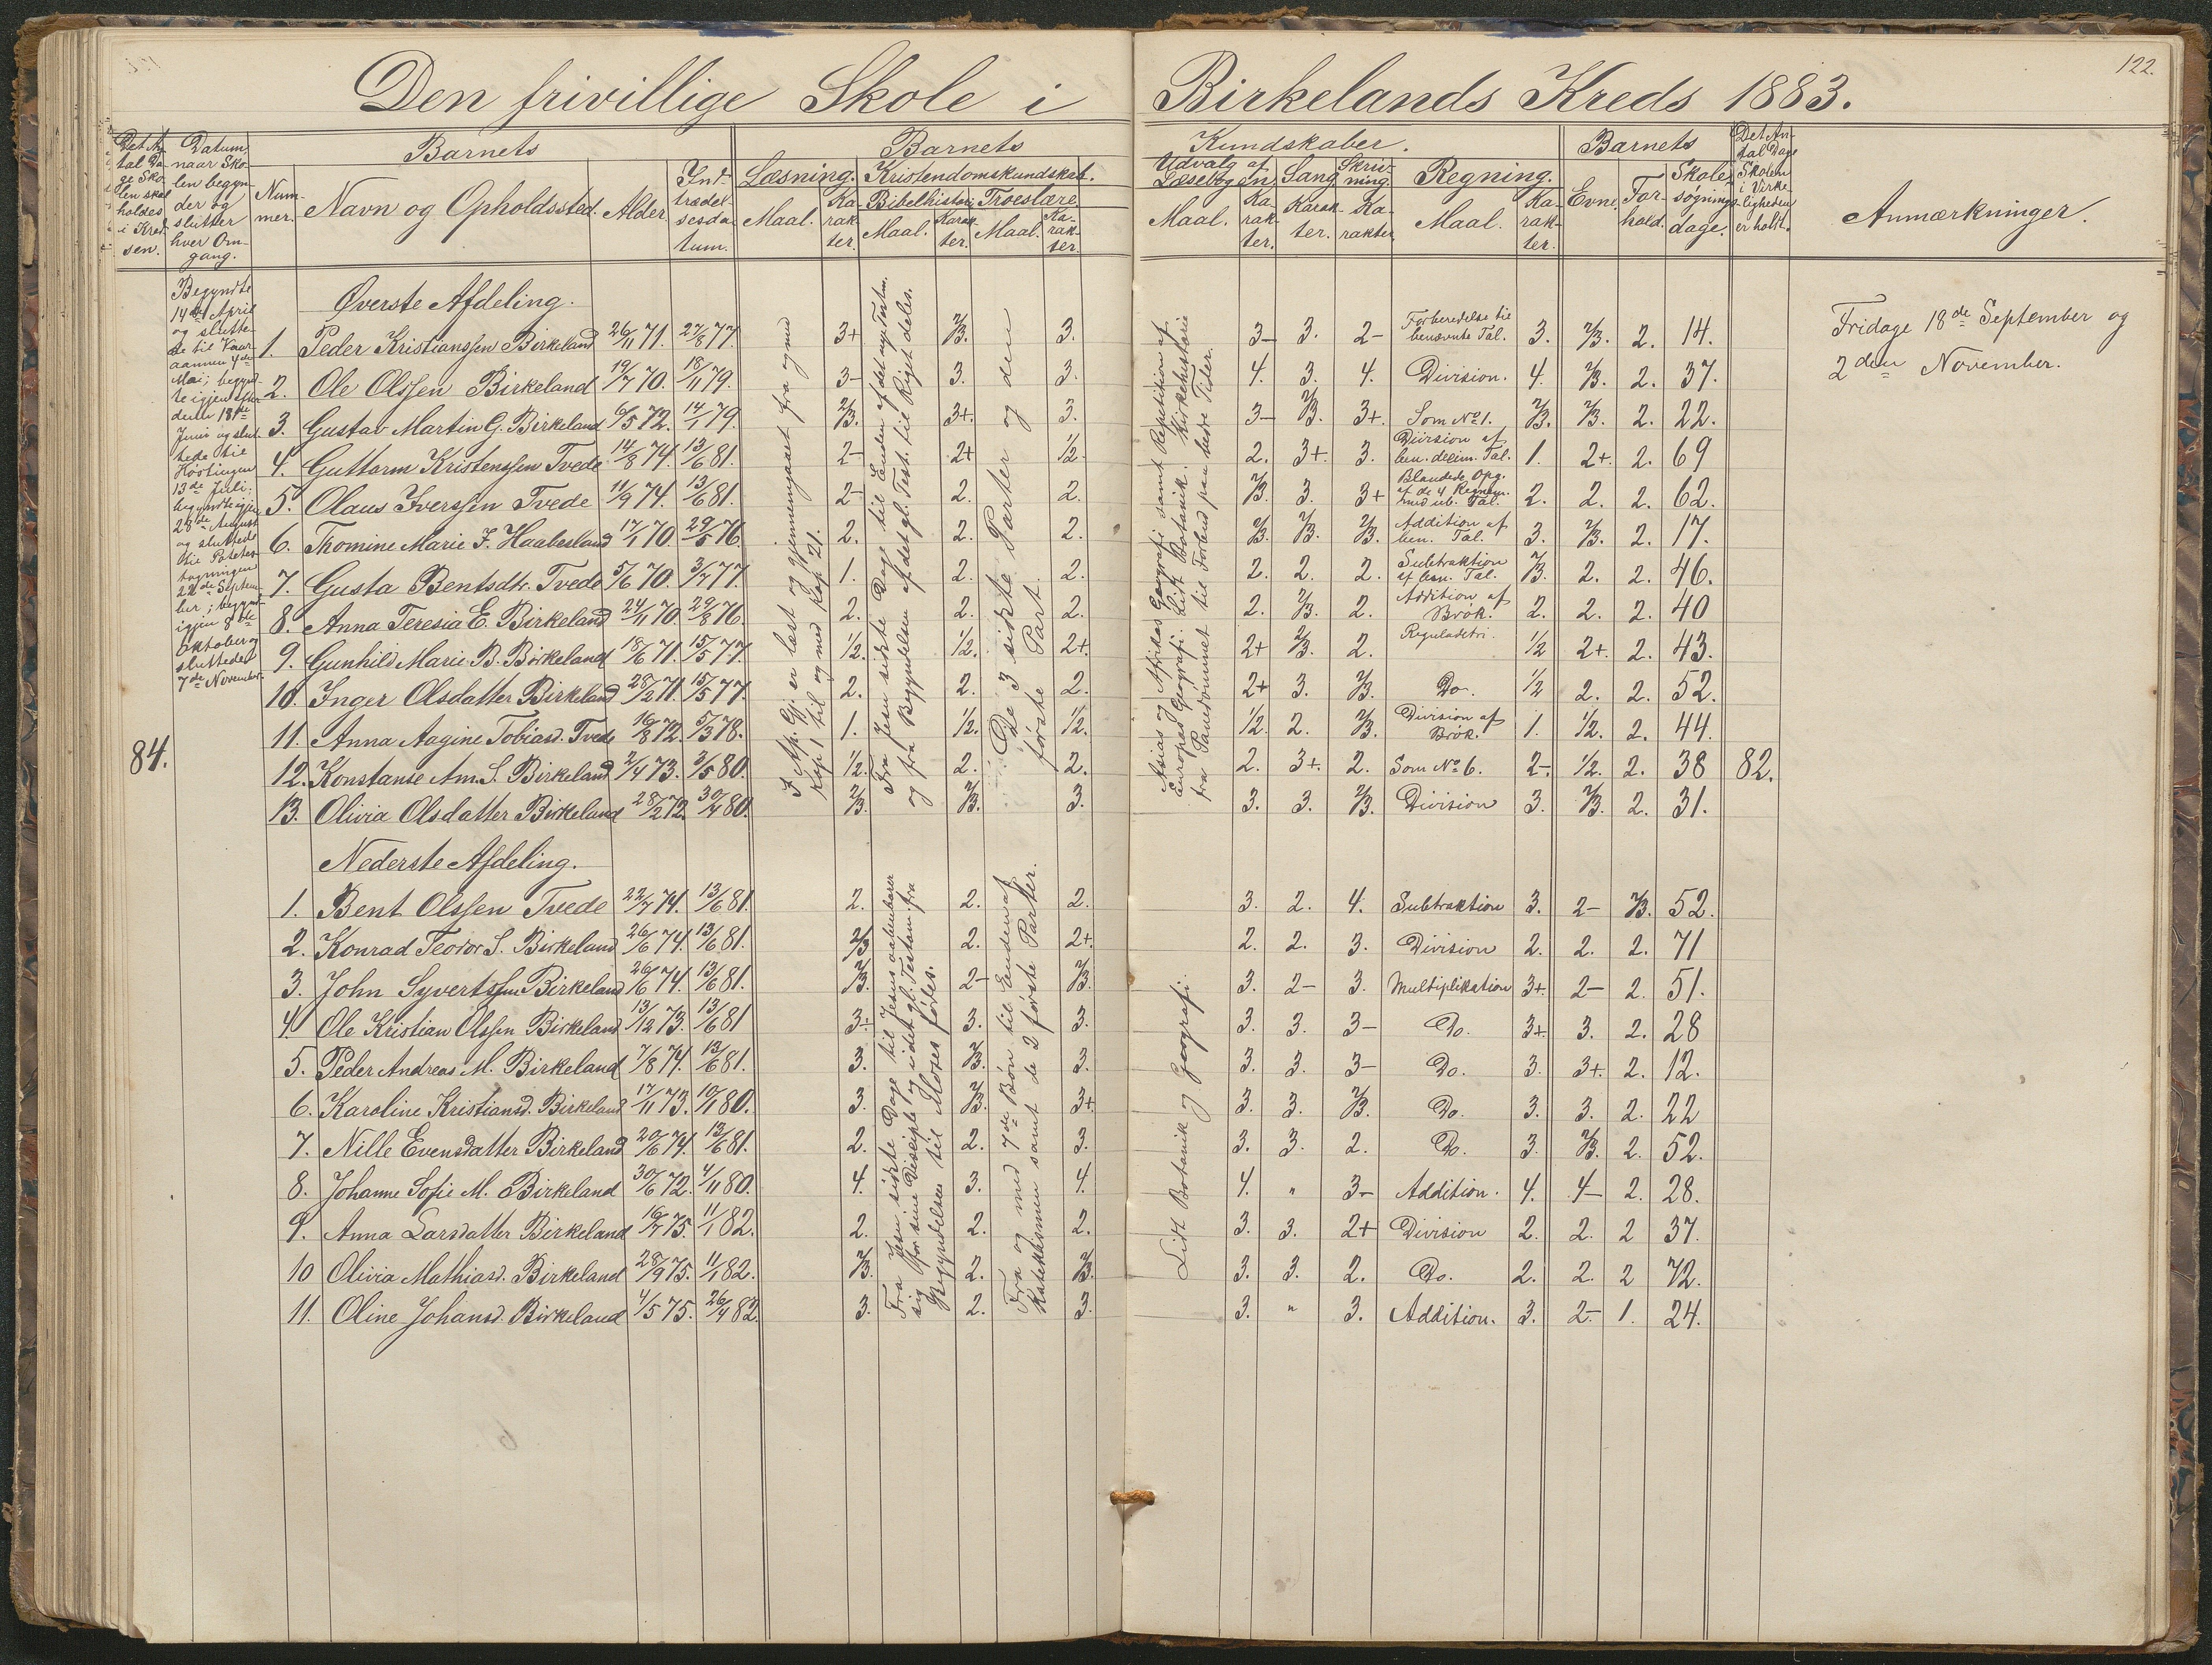 122.
Den frivillige Skole i Birkelands Kreds 1883.
Det An-
tal Da-
ge Sko-
len skal
holdes
i Kred-
sen.
Datum,
naar Sko-
len begyn-
der og
slutter
hver Om-
gang.
Barnets
Num-
mer.
Navn og Opholdssted.
Alder
Ind-
trædel-
sesda-
tum.
Barnets
Læsning.
Maal.
Ka-
rak-
ter.
Kristendomskundskab.
Bibelhistorie
Maal.
Karak-
ter.
Troeslære
Maal.
Ka-
rak-
ter.
Kundskaber.
Udvalg af
Læsebogen.
Maal.
Ka-
rak-
ter.
Sang
Karak-
ter.
Skriv-
ning.
Ka-
rakter
Regning.
Maal.
Ka-
rak-
ter.
Barnets
Evne.
For-
hold.
Skole-
søgnings-
dage.
Det An-
tal Dage
Skolen
i Virke-
ligheden
er holdt.
Anmærkninger.
Begyndte
14de April
og slutte-
de til Vaar-
aannen 4de
Mai; begynd-
te igjen efter
den 18de
Juni og slut-
tede til
Høstingen
13de Juli;
begyndte igjen
28de August
og sluttede
til Potetes-
tagningen
22de Septem-
ber; begyndt
igjen 8de
Oktober og
sluttede
7de November.
84.
82.
Øverste Afdeling.
1. Peder Kristianssen Birkeland 26/11 71. 27/8 77. 3+ 2/3. 3. 3- 3. 2- Forberedelse til benævnte Tal. 3. 2/3. 2. 14.
2. Ole Olssen Birkeland 19/7 70. 18/11 79. 3- 3. 3. 4. 3. 4. Division. 4. 2/3. 2. 37.
3. Gustav Martin G. Birkeland 6/5 72. 14/1 79. 2/3. 3+. 3. 3- 2/3. 3+. Som No 1. 2/3. 2/3. 2. 22.
4. Guttorm Kristenssen Tvede 14/8 74. 13/6 81. 2- 2+ 1/2. 2. 3+. 3. Division af ben. decim. Tal. 1. 2+. 2. 69
5. Olaus Iverssen Tvede 11/9 74. 13/6 81. 2- 2. 2. 2/3. 3. 3+ Blandede Opg. af de 4 Regnem. med ub. Tal. 2. 2. 2. 62.
6. Thomine Marie F. Haabesland 17/1 70. 29/5 76. 2. 2. 2. 2/3. 2/3. 2/3. Addition af ben. Tal. 3. 2/3. 2. 17.
7. Gusta Bentsdtr. Tvede 5/6 70. 3/7 77. 1. 2. 2. 2. 2. 2. Subtraktion af ben. Tal. 2/3. 2. 2. 46.
8. Anna Teresia E. Birkeland 24/11 70. 29/8 76. 2. 2. 2. 2. 2/3. 2. Addition af Brøk. 2. 2. 2. 40
9. Gunhild Marie B. Birkeland 18/6 71. 15/5 77. 1/2. 1/2. 2+. 2+ 2/3. 2. Reguladetri. 1/2 2+. 2. 43.
10. Inger Olsdatter Birkeland 28/2 71. 15/5 77. 2. 2. 2. 2+ 3. 2/3. Do. 1/2 2. 2. 52.
11. Anna Aagine Tobiasd. Tvede 16/8 72. 5/3 78. 1. 1/2. 1/2. 1/2. 2. 2/3. Division af Brøk. 1. 1/2. 2. 44.
12. Konstanse Am. S. Birkeland 2/4 73. 3/5 80. 1/2. 2. 2. 2. 3+. 2. Som No 6. 2-. 1/2. 2. 38
13. Olivia Olsdatter Birkeland 28/2 72. 30/4 80. 2/3. 2/3. 3. 3. 3. 2/3. Division 3. 2/3. 2. 31.
I Ap. Gj. er læst og gjennemgaaet fra og med
Kap. 1 til og med Kap 21.
Fra Jesu sidste Dage til Enden af det nye Testm.
og fra Begyndelsen af det gl. Test. til Riget deles.
De 3 sidste Parter og den
første Part.
Asias og Afrikas Geografi samt Repetition af
Europas Geografi. Lidt Botanik. Kirkehistorie
fra Pavedømmet til Forbud paa bedre Tider.
Fridage 18de September og
2den November.
Nederste Afdeling.
1. Bent Olssen Tvede 22/7 74. 13/6 81. 2. 2. 2. 3. 2. 4. Subtraktion 3. 2- 2/3. 52.
2. Konrad Teodor S. Birkeland 26/6 74. 13/6 81. 2/3 2. 2+. 2. 2. 3. Division 2. 2. 2. 71
3. John Syvertssen Birkeland 26/6 74. 13/6 81. 2/3. 2- 2/3. 3. 2- 3. Multiplikation 3+. 2- 2. 51.
4. Ole Kristian Olssen Birkeland 13/12 73. 13/6 81 3+ 3. 3. 3. 3. 3- Do. 3+. 3. 2. 28
5. Peder Andreas M. Birkeland 7/8 74. 13/6 81. 3. 2/3. 3. 3. 3. 3- Do. 3. 3+. 2. 12.
6. Karoline Kristiansd. Birkeland 17/11 73. 10/11 80. 3. 2/3. 3+ 3. 3. 2/3. Do. 3. 3. 2. 22
7. Nille Evensdatter Birkeland 20/6 74. 13/6 81. 2. 2. 3. 3. 3. 2. Do. 3. 2/3. 2. 52.
8. Johanne Sofie M. Birkeland 30/6 72. 4/11 80. 4. 3. 4. 4. " 3- Addition. 4. 4- 2. 28.
9. Anna Larsdatter Birkeland 16/7 75. 11/1 82. 2. 2. 2. 3. 3. 2+ Division 2. 2. 2 37.
10 Olivia Mathiasd. Birkeland 28/9 75. 11/1 82. 2/3. 2. 2/3. 3. 3. 2. Do. 2. 2. 2 72.
11. Oline Johansd. Birkeland 4/5 75. 26/4 82. 3. 2. 3. 3. " 3. Addition. 3. 2- 1. 24.
Fra Jesu sidste Dage til Jesus aabenbarer
sig for sine Disciple og i det gl. Testam. fra
Begyndelsen til Moses fødes.
Fra og med 7de Bøn til Enden af
Katekismen samt de 2 første Parter.
Lidt Botanik og Geografi.